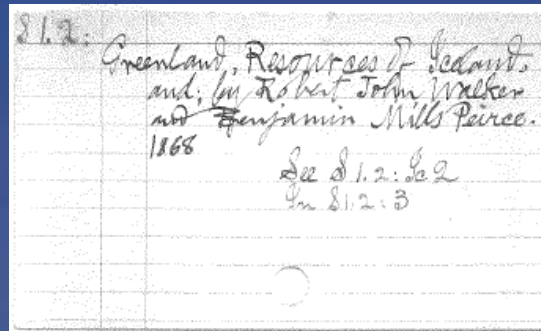 S 1.2:
Greenland, Resources of Iceland,
and; by Robert John Walker
and Benjamin Mills Peirce.
1868
See S 1.2: Ic 2
In S 1.2: 3